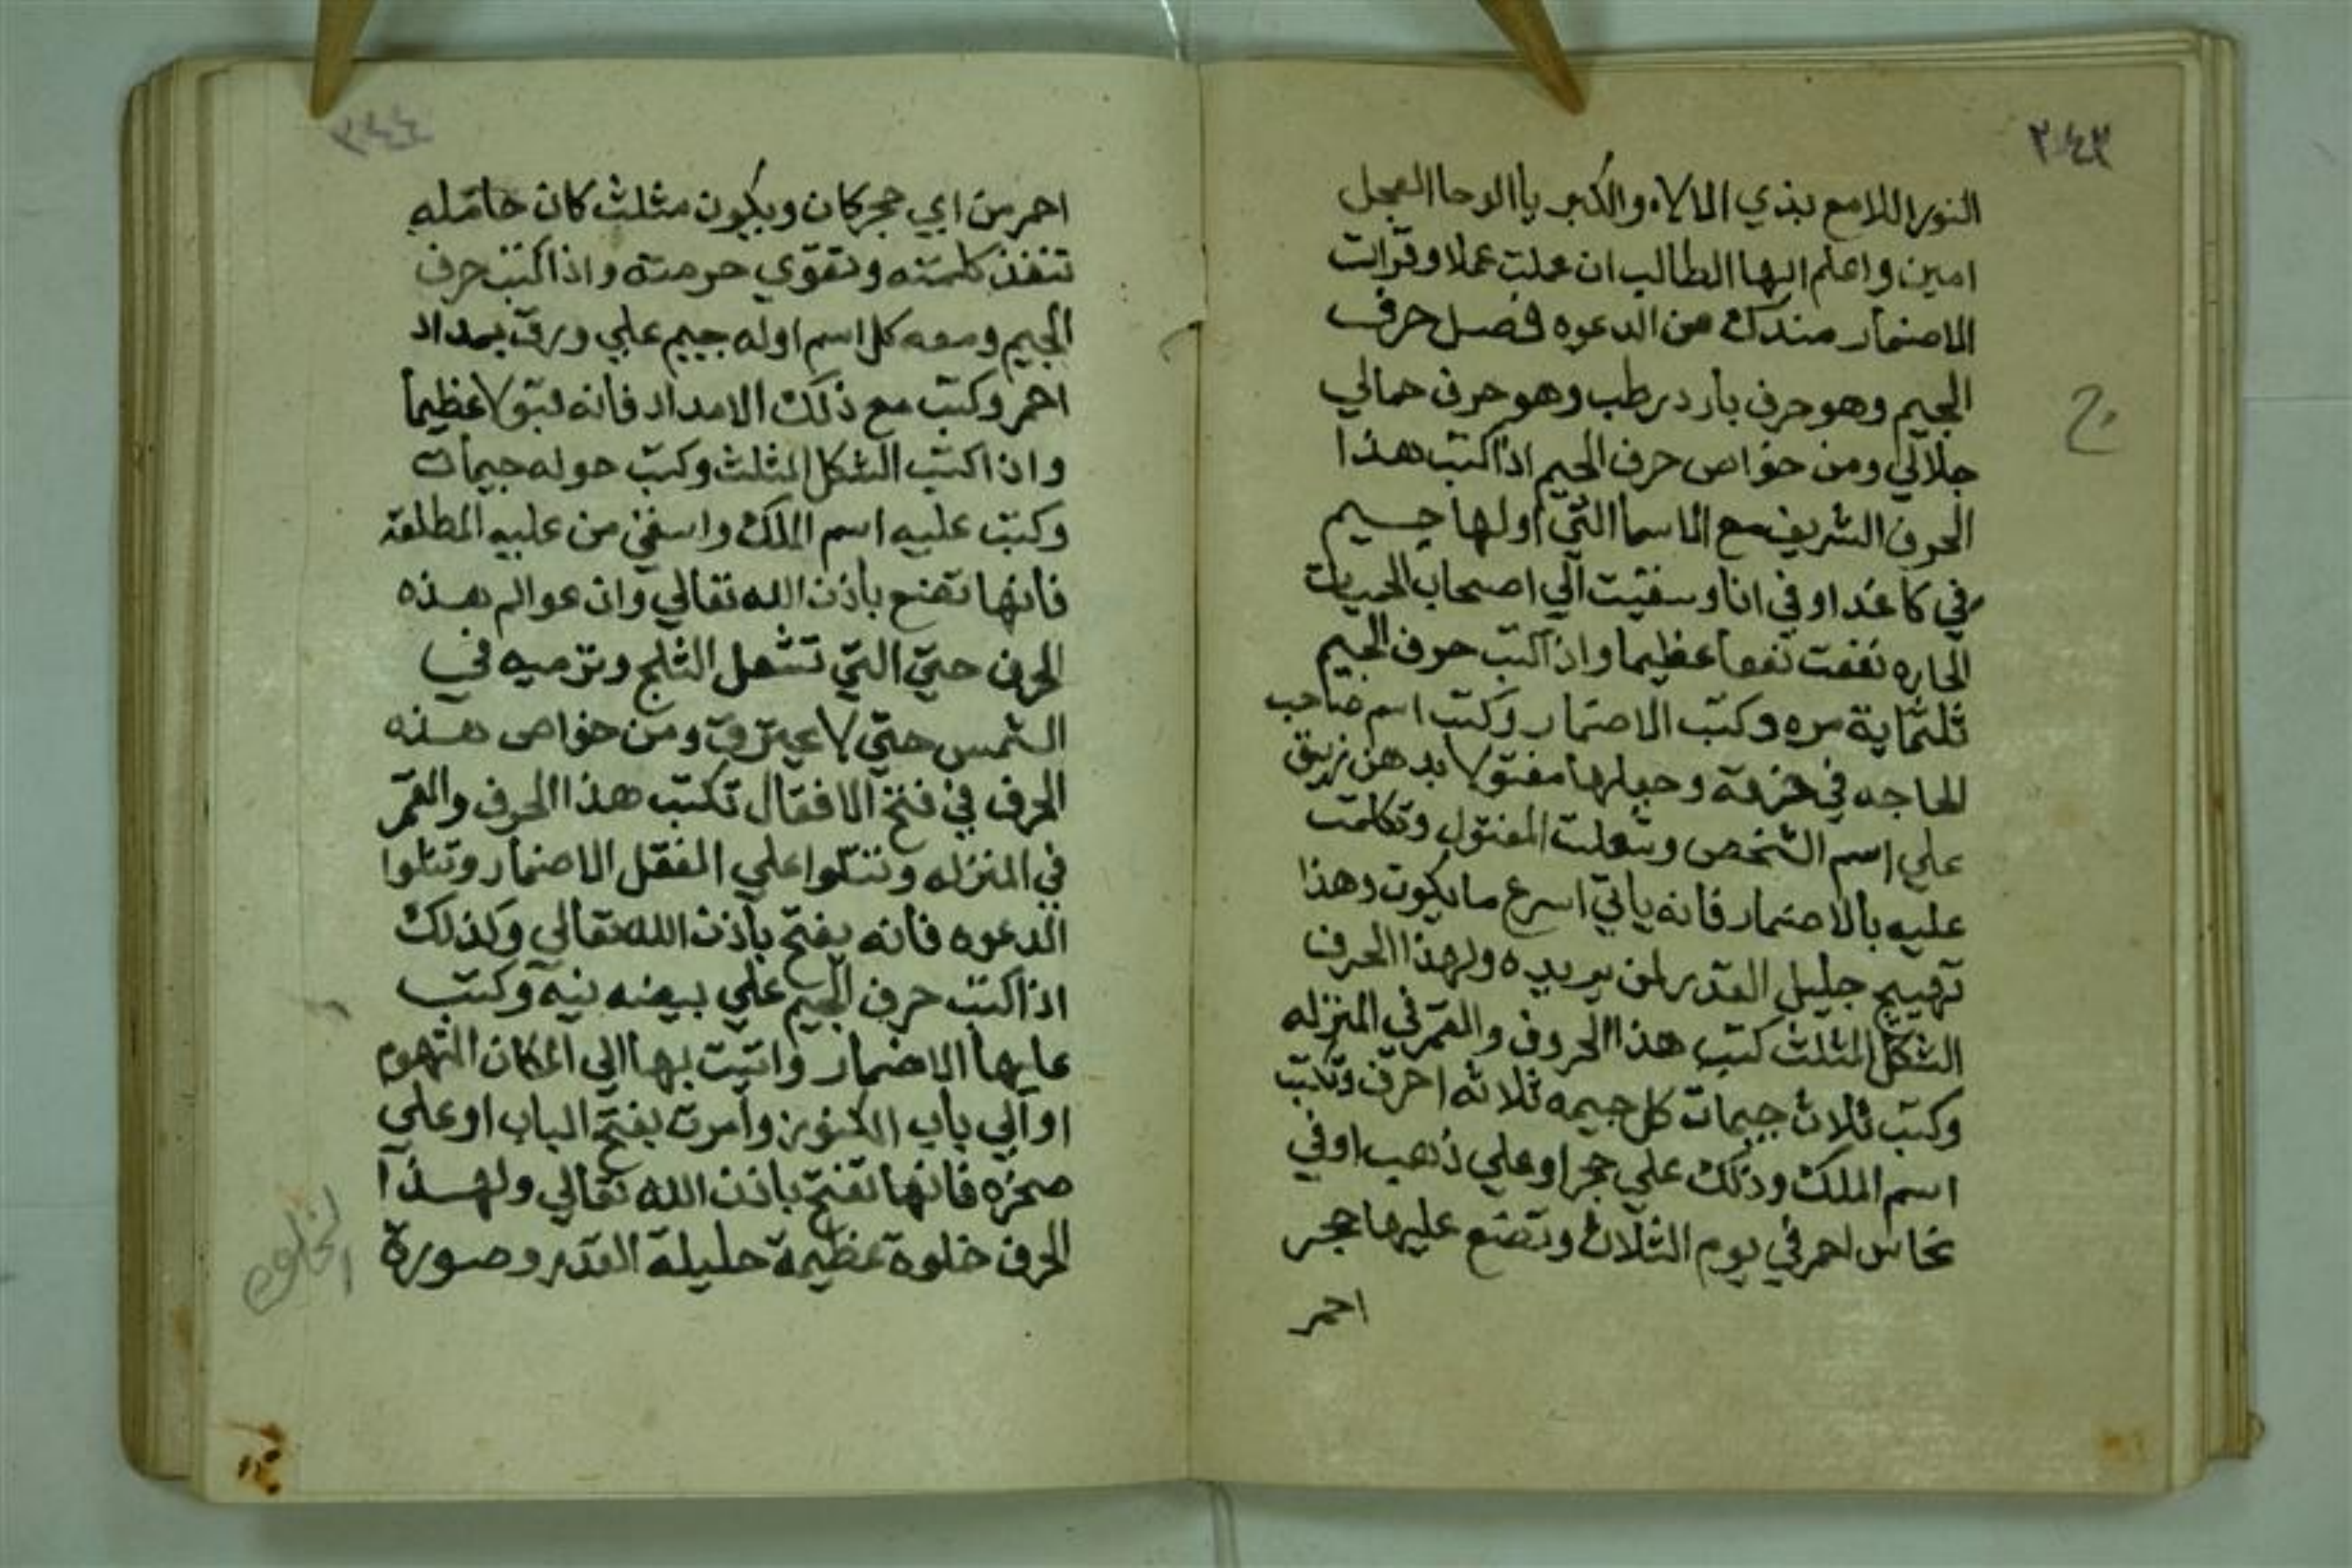 ٣٤٣
النور اللامع بذي الالاء والكبر يا الوحا العجل
امين واعلم ايها الطالب ان عملت عملا وقرات
الاضمار مندك من الدعوه فصل حرف
الجيم وهو حرف بارد رطب وهو حرف جمالي
ج
جلالي ومن خواص حرف الجيم اذا كتب هذا
الحرف الشريف مع الاسما التي اولها جيم
في كاغد او في انا وسقيت الي اصحاب الحميات
الحاره نفعت نفعا عظيما واذا كتب حرف الجيم
ثلثماية مره وكتب الاضمار وكتب اسم صاحب
الحاجه في خرقة وجعلها مفتولا بدهن زيبق
علي اسم الشخص وشعلت المفتول وتكلمت
عليه بالاضمار فانه ياتي اسرع ما يكون وهذا
تهييج جليل القدر لمن يريده ولهذا الحرف
الشكل المثلث كتب هذا الحروف والقمر في المنزله
وكتب ثلاث جيمات كل جيمه ثلاثه احرف وتكتب
اسم الملك وذلك علي حجر او علي ذهب او في
نحاس احمر في يوم الثلاث وتضع عليها حجر
احمر
٣٤٤
احمر من اي حجر كان ويكون مثلث كان حامله
تنفذ كلمته وتقوي حرمته واذا كتب حرف
الجيم ومعه كل اسم اوله جيم علي ورق بمداد
احمر وكتب مع ذلك الامداد فانه قبولا عظيما
واذا كتب الشكل المثلث وكتب حوله جيمات
وكتب عليه اسم الملك واسقي من عليه المطلقة
فانها تضع باذن الله تعالي وان عوالم هذه
الحرف حتي التي تشعل الثلج وترميه في
الشمس حتي لا يحترق ومن خواص هذه
الحرف في فتح الاقفال تكتب هذا الحرف والقمر
في المنزله وتتلوا علي المقفل الاضمار وتتلوا
الدعوه فانه يفتح باذن الله تعالي وكذلك
اذا كتب حرف الجيم علي بيضه نيه وكتب
عليها الاضمار واتيت بها الي المكان التهوم
او الي باب الكنوز وامرت بفتح الباب او علي
صخره فانها تفتح باذن الله تعالي ولهذا
الحرف خلوة عظيمة جليلة القدر وصورة
الخلوه